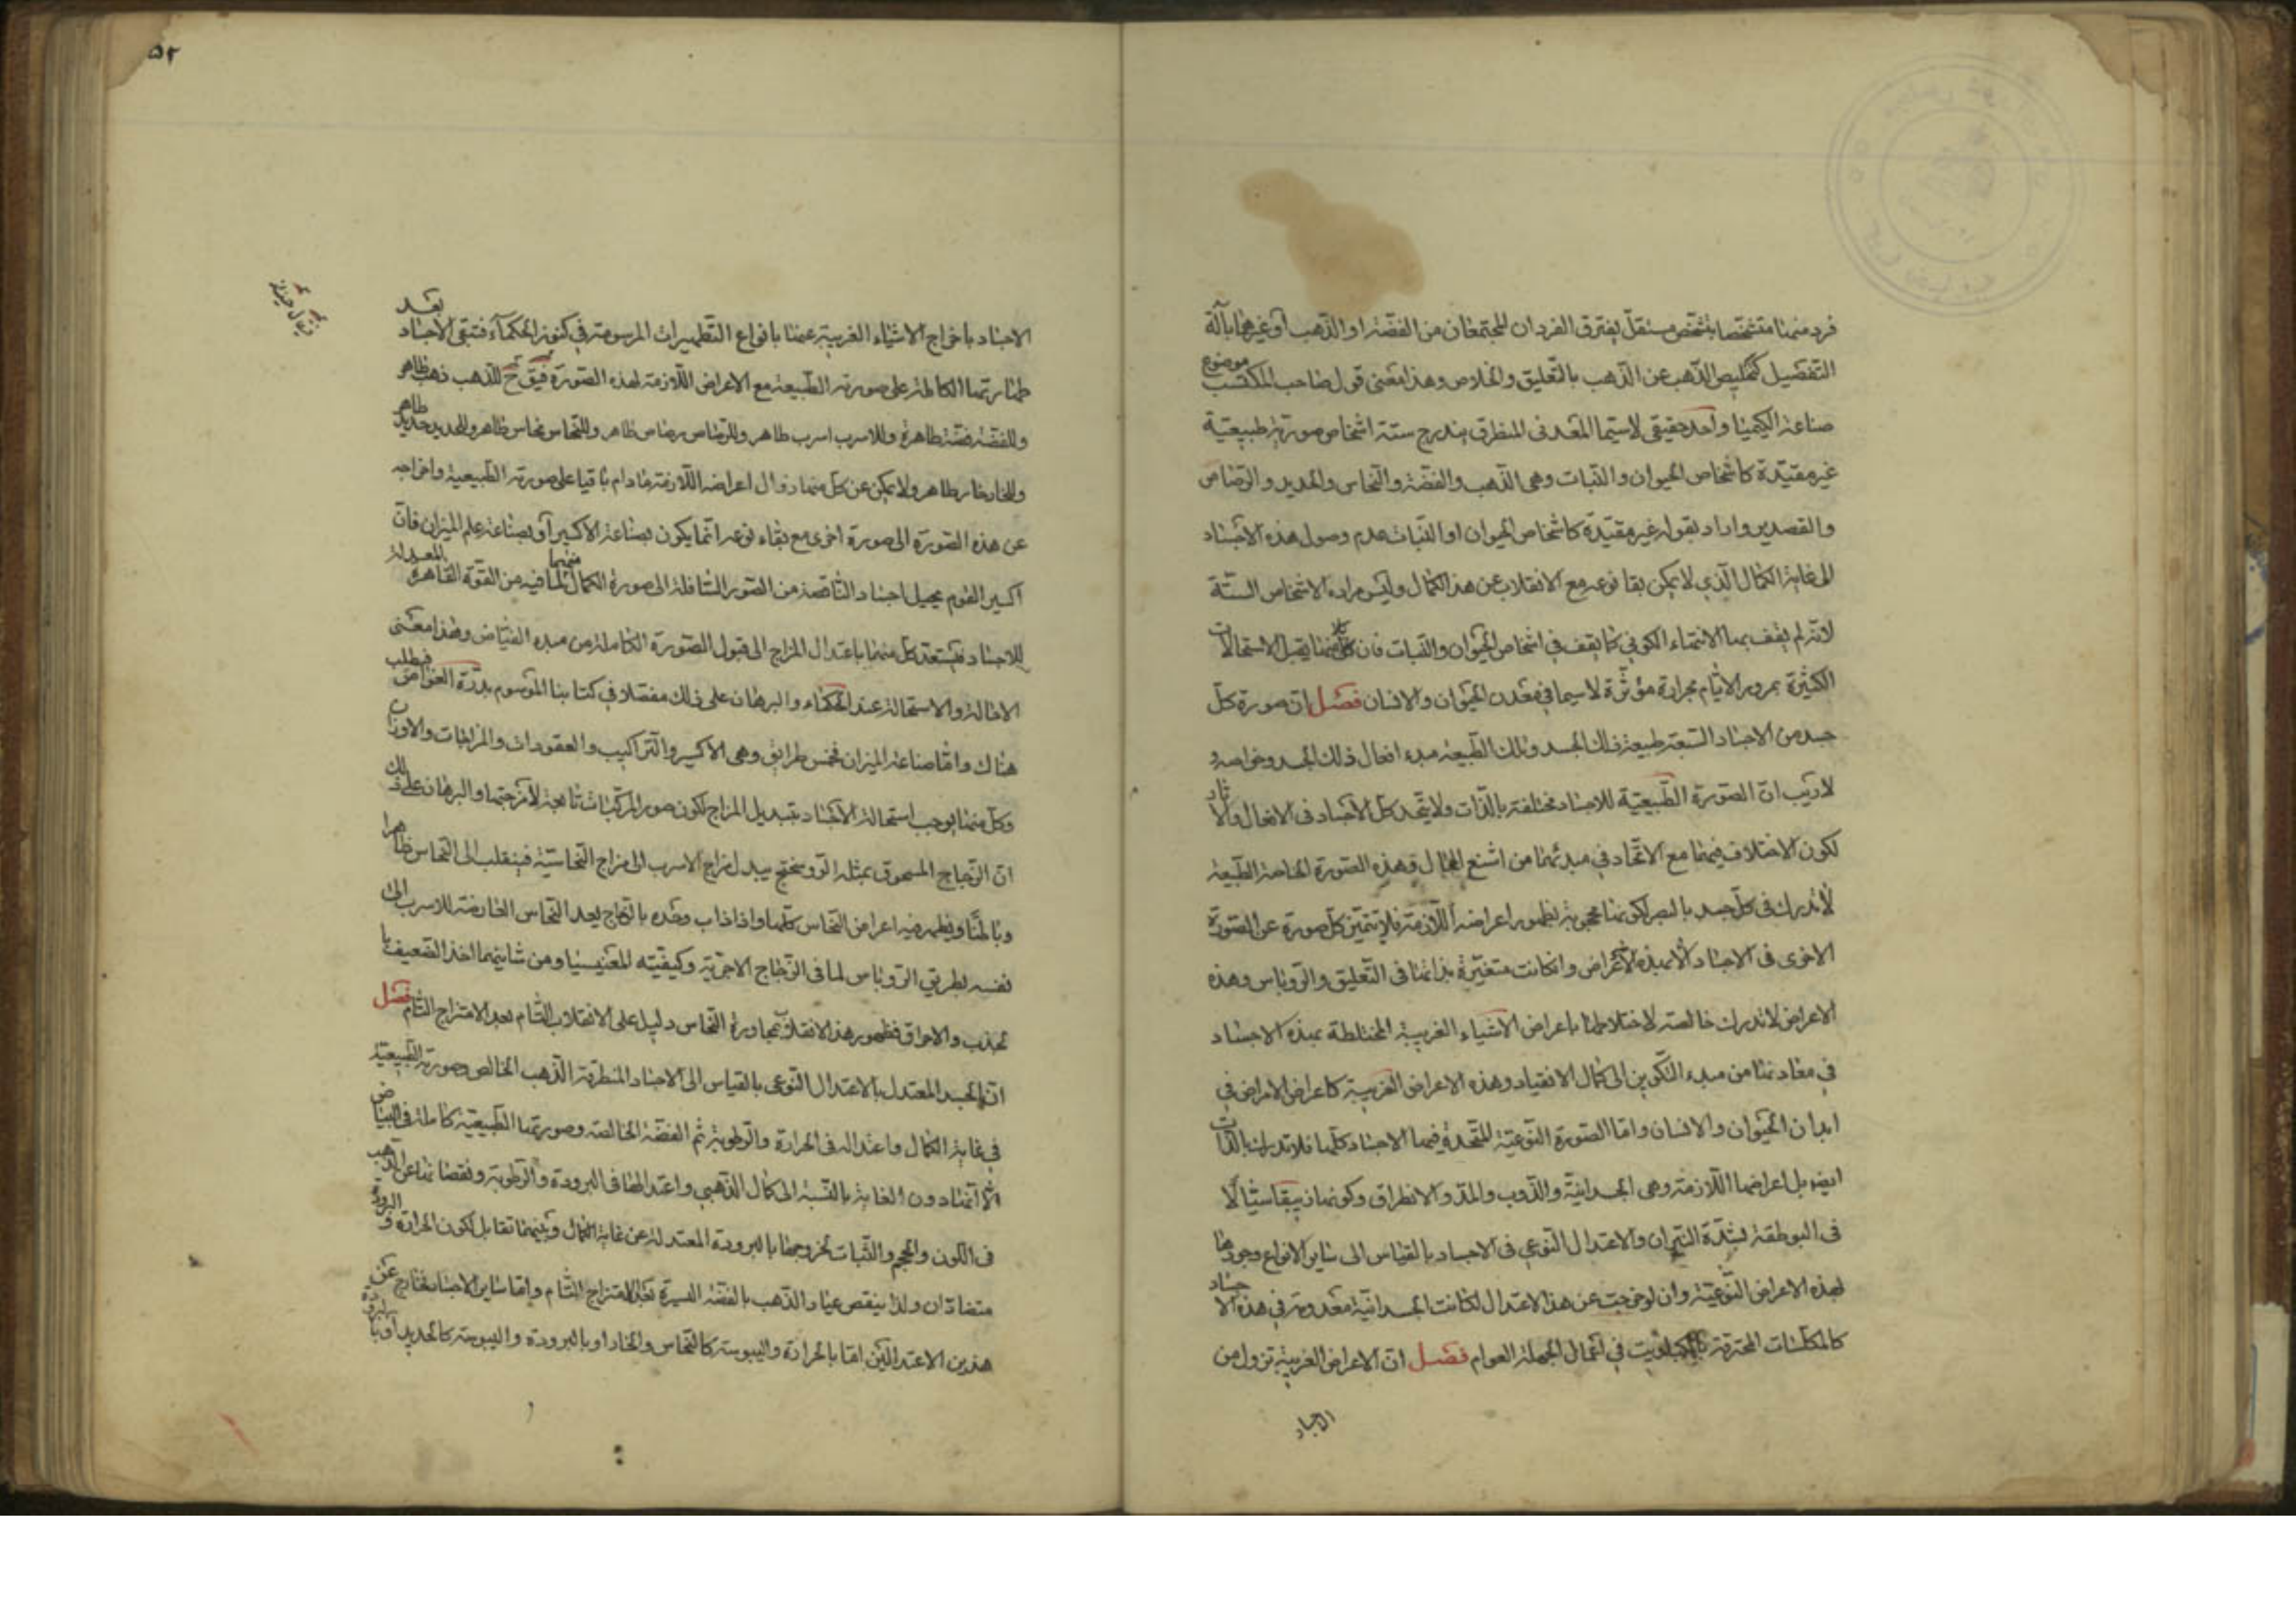 فرد منهما متشخصا بتشخص مستقل يفترق الفردان المجتمعان من الفضة او الذهب او غيرهما بآلة
التفصيل كتخليص الذهب عن الذهب بالتعليق والخلاص وهذا معنى قول صاحب المكتسب موضوع
صناعة الكيميا واحد حقيقي لاسيما المعدني المنطرق يندرج ستة اشخاص صورته طبيعية
غير مقيدة كاشخاص الحيوان والنبات وهي الذهب والفضة والنحاس والحديد والرصاص
والقصدير واراد بقوله غير مقيدة كاشخاص الحيوان او النبات عدم وصول هذه الاجساد
الى غاية الكمال الذي لا يمكن بقا نوعه مع الانقلاب عن هذ الكمال وليس مراده الاشخاص الستة
لانه لم يقف بها الانتهاء الكوني كما يقف في اشخاص الحيوان والنبات فان كل منهما يقبل الاستحالات
الكثيرة بمرور الايام بحرارة مؤثرة لاسيما في معدن الحيوان والانسان فصل ان صورة كل
جسد من الاجساد السبعة طبيعة ذلك الجسد وتلك الطبيعة مبدء افعال ذلك الجسد وخواصه و
لاريب ان الصورة الطبيعية للاجساد مختلفة بالذات ولا يتحد كل الاجساد في الافعال والاثار
لكون الاختلاف فيهما مع الاتحاد في مبدئهما من اشنع المحال وهذه الصورة الخاصة الطبيعة
لا تدرك في كل جسد بالبصر لكونها محجوبة بظهور اعراضه اللازمة فلا يتميز كل صورة عن الصورة
الاخرى في الاجساد الا بهذه الاعراض وانكانت متغيرة بذاتها في التعليق والروباس وهذه
الاعراض لا تدرك خالصة لاختلاطها باعراض الاشياء الغريبة المختلطة بهذه الاجساد
في معادنها من مبدء التكوين الى كمال الانقياد وهذه الاعراض الغريبة كاعراض الامراض في
ابدان الحيوان والانسان واما الصورة النوعية المتحدة فيها الاجساد كلها فلا تدرك بالذات
ايضا بل اعراضها اللازمة وهي الجسدانية والذوب والمد والانطراق وكونها زيبقا سيالا
في البوطقة بشدة النيران والاعتدال النوعي في الاجساد بالقياس الى ساير الانواع وجودها
لهذه الاعراض النوعية وان لو خرجت عن هذا الاعتدال لكانت الجسدانية معدومة في هذه الاجساد
كالمكلسات المحترقة في اعمال الجهلة العوام فصل ان الاعراض الغريبة تزول من
الاجساد
۵۲
الاجساد باخراج الاشياء الغريبة عنها بانواع التطهيرات المرسومة في كنوز الحكماء فتبقى الاجساد بعد
طهارتها الكاملة على صورته الطبيعة مع الاعراض اللازمة لهذه الصورة فيق ح للذهب ذهب طاهر
وللفضة فضة طاهرة وللاسرب اسرب طاهر وللرصاص رصاص طاهر وللنحاس نحاس طاهر وللحديد حديد طاهر
وللخار خار طاهر ولا يمكن عن كل منها زوال اعراضه اللازمة مادام باقيا على صورته الطبيعية واخراجه
عن هذه الصورة الى صورة اخرى مع بقاء نوعه انما يكون بصناعة الاكسير او بصناعة علم الميزان فان
اكسير القوم يحيل اجساد الناقصة من الصور السافلة الى صورة الكمال منهما لما فيه من القوة القاهرة المعدلة
للاجساد فيستعد كل منها باعتدال المزاج الى قبول الصورة الكاملة من مبدء الفياض وهذا معنى
الاحالة والاستحالة عند الحكماء والبرهان على ذلك مفصلا في كتابنا الموسوم بدرة الغواص فيطلب
هناك واما صناعة الميزان فخمس طرائق وهي الاكسير والتراكيب والعقودات والمزاجات والاوزان
وكل منها يوجب استحالة الاجساد بتبديل المزاج لكون صور المركبات تابعة لامزجتها والبرهان على ذلك
ان الزجاج المسحوق بمثله الروسختج يبدل مزاج الاسرب الى مزاج النحاسية فينقلب الى النحاس ظاهرا
وباطنا ويظهر فيه اعراض النحاس كلها واذا ذاب وحده بالزجاج يعد النحاس العارضة للاسرب الى
نفسه بطريق الروباس لما في الزجاج الاحرية وكيفيته المغنيسيا ومن شانهما اخذ الضعيف با
لجذب والاحراق فظهور هذ الانقلاب بمجاورة النحاس دليل على الانقلاب التام بعد الامتزاج التام فصل
ان الجسد المعتدل بالاعتدال النوعي بالقياس الى الاجساد المنطرقة الذهب الخالص وصورته الطبيعية
في غاية الكمال واعتداله في الحرارة والرطوبة ثم الفضة الخالصة وصورتها الطبيعية كاملة في البياض
الا انها دون الغاية بالنسبة الى كمال الذهبي واعتدالها في البرودة والرطوبة ونقصانها عن الذهب
في اللون والحجم والثبات لخروجها بالبرودة المعتدلة عن غاية الكمال وبينهما تقابل لكون الحرارة والبرودة
متضادان ولذا ينقص عيار الذهب بالفضة اليسيرة بعد الامتزاج التام واما ساير الاجساد فخارج عن
هذين الاعتدالين اما بالحرارة واليبوسة كالنحاس والخار او بالبرودة واليبوسة كالحديد او بالبرودة